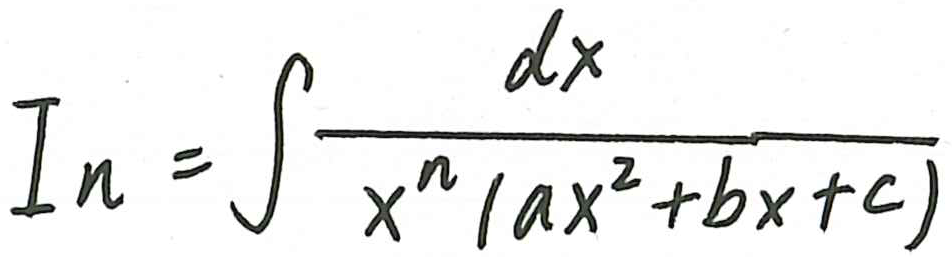 In = ∫ dx / x^n (ax^2 + bx + c)